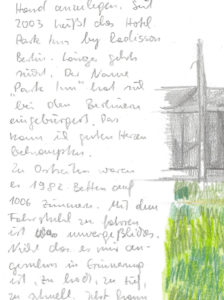 Hand anzulegen. Seit
2003 heißt das Hotel
Park Inn by Radisson
Berlin. Länger gehts
nicht. Der Name
"Park Inn" hat sich
bei den Berlinern
eingebürgert. Das
kann ich guten Herzen
behaupten.
Zu Ostzeiten waren
es 1982 Betten auf
1006 Zimmern. Mit dem
Fahrstuhl zu fahren
ist unvergeßlich.
Nicht das es mir an-
genehm in Erinnerung
ist, zu hoch, zu tief,
zu schnell. Jetzt kann